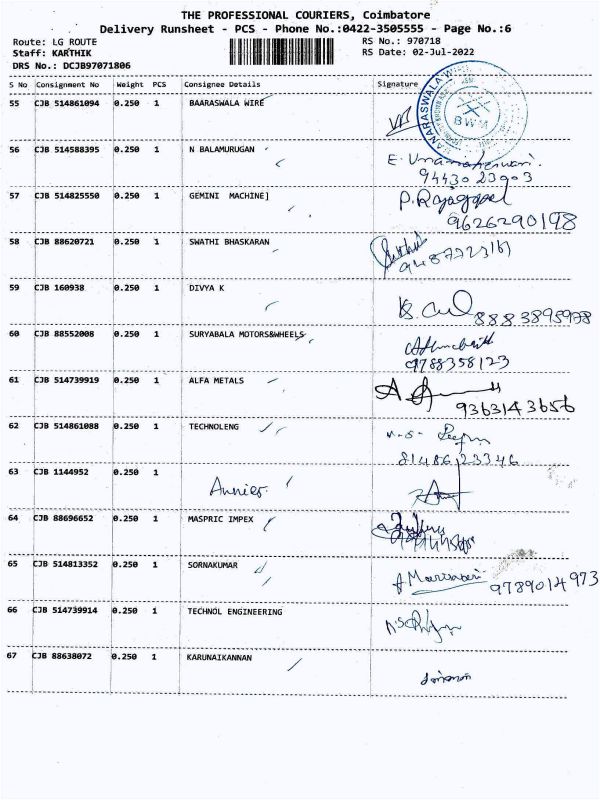 THE PROFESSIONAL COURIERS, Coimbatore
Delivery Runsheet - PCS - Phone No.:0422-3505555 - Page No.:6
Route: LG ROUTE RS No.: 970718
Staff: KARTHIK RS Date: 02-Jul-2022
DRS No.: DCJB97071806
S No Consignment No Weight PCS Consignee Details Signature
55 CJB 514861094 0.250 1 BAARASWALA WIRE
BWM
56 CJB 514588395 0.250 1 N BALAMURUGAN
94430 23903
57 CJB 514825550 0.250 1 GEMINI MACHINE] P. Rajagopal
9626290198
58 CJB 88620721 0.250 1 SWATHI BHASKARAN
59 CJB 160938 0.250 1 DIVYA K
8883895978
60 CJB 88552008 0.250 1 SURYABALA MOTORS&WHEELS
9788358123
61 CJB 514739919 0.250 1 ALFA METALS
9363143656
62 CJB 514861088 0.250 1 TECHNOLENG
81486 23346
63 CJB 1144952 0.250 1
64 CJB 88696652 0.250 1 MASPRIC IMPEX
65 CJB 514813352 0.250 1 SORNAKUMAR
9789014973
66 CJB 514739914 0.250 1 TECHNOL ENGINEERING
67 CJB 88638072 0.250 1 KARUNAIKANNAN